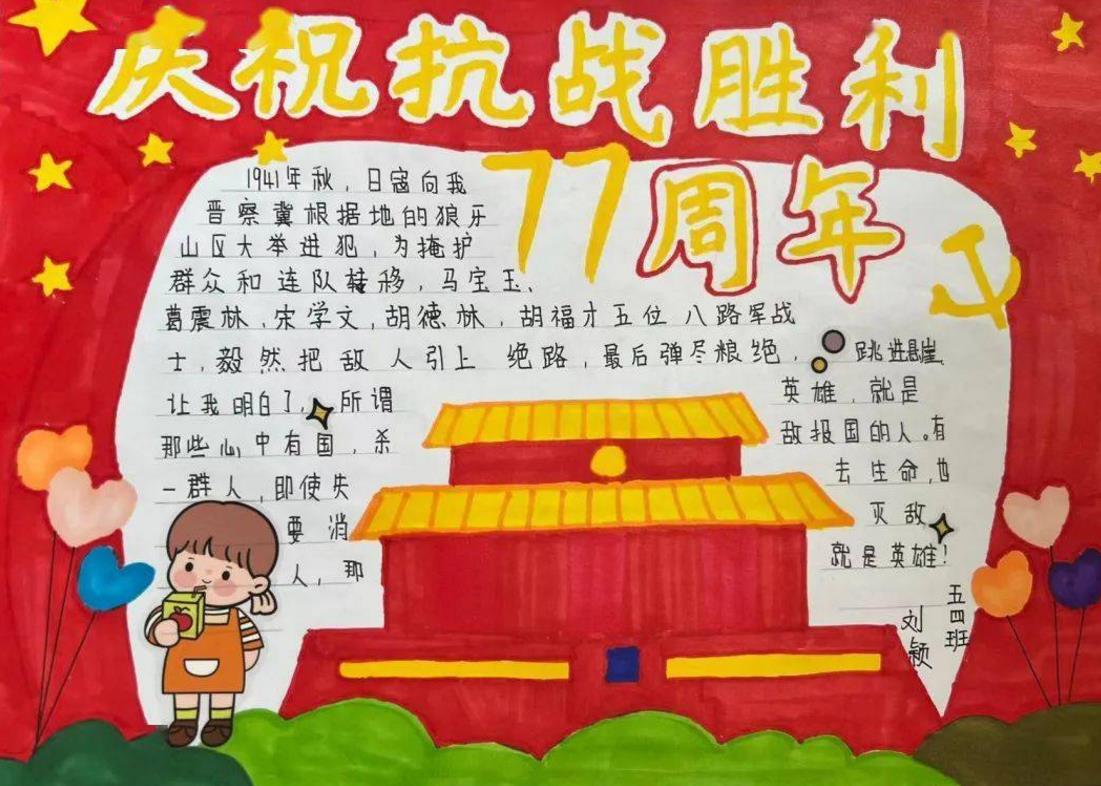 庆祝抗战胜利
77周年
1941年秋，日寇向我
晋察冀根据地的狼牙
山区大举进犯，为掩护
群众和连队转移，马宝玉、
葛震林、宋学文，胡德林，胡福才五位八路军战
士，毅然把敌人引上绝路，最后弹尽粮绝，跳进悬崖、
让我明白了，所谓英雄，就是
那些心中有国，杀敌报国的人。有
一群人，即使失去生命，也
要消灭敌
人，那就是英雄！
五四班
刘颖